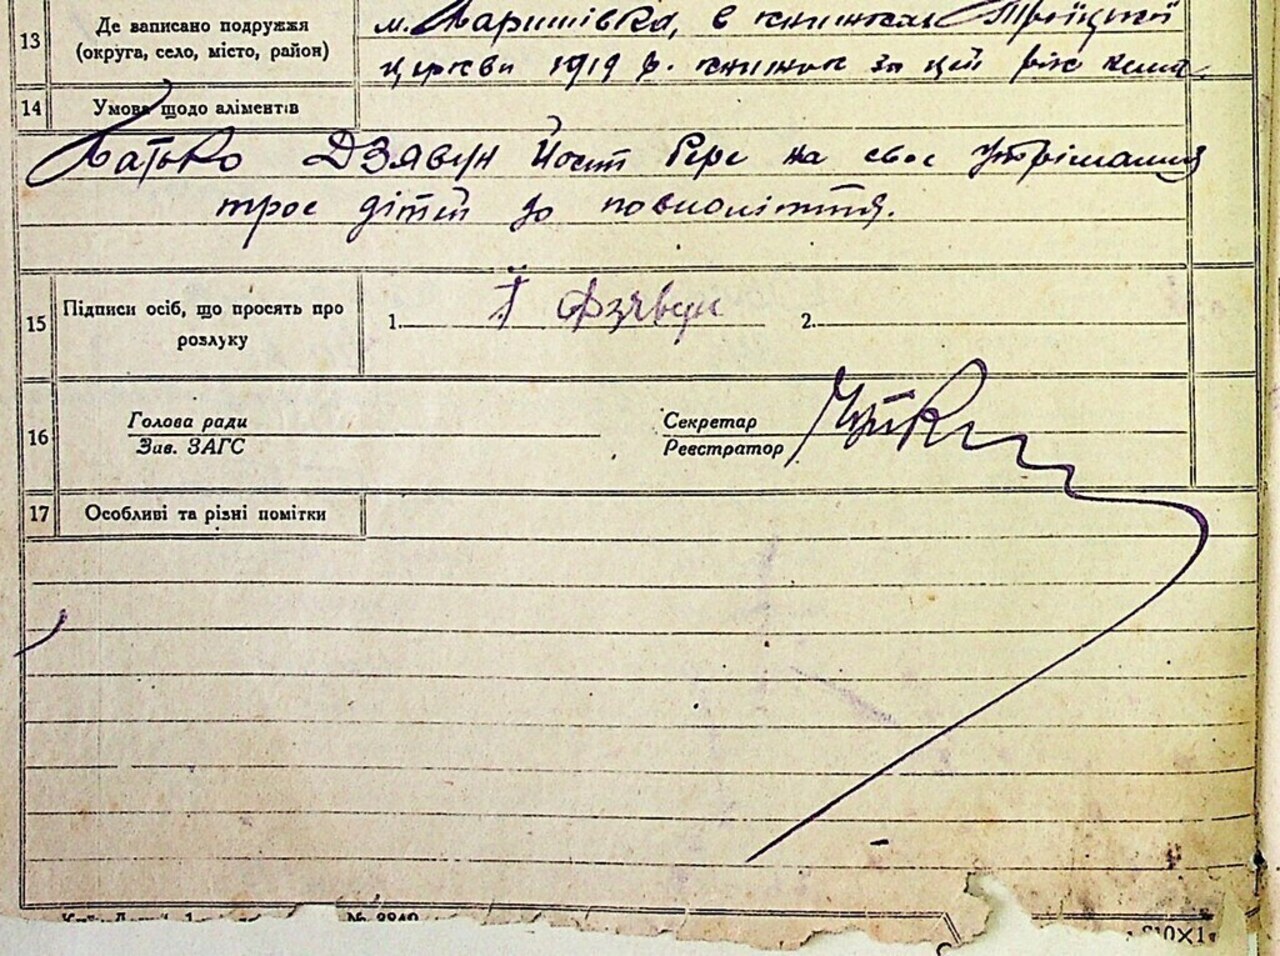 13 Де записано подружжя (округа, село, місто, район)
м. Баришівка, в книжках Троїцької
церкви 1919 р. книжок за цей рік нема.
14 Умова щодо аліментів
Батько Дзявун Йосип бере на своє утрімання
троє дітей до повноліття.
15 Підписи осіб, що просять про розлуку
1. Й Дзявун 2.
16 Голова ради
Зав. ЗАГС
Секретар
Реєстратор
17 Особливі та різні помітки
№ 8849